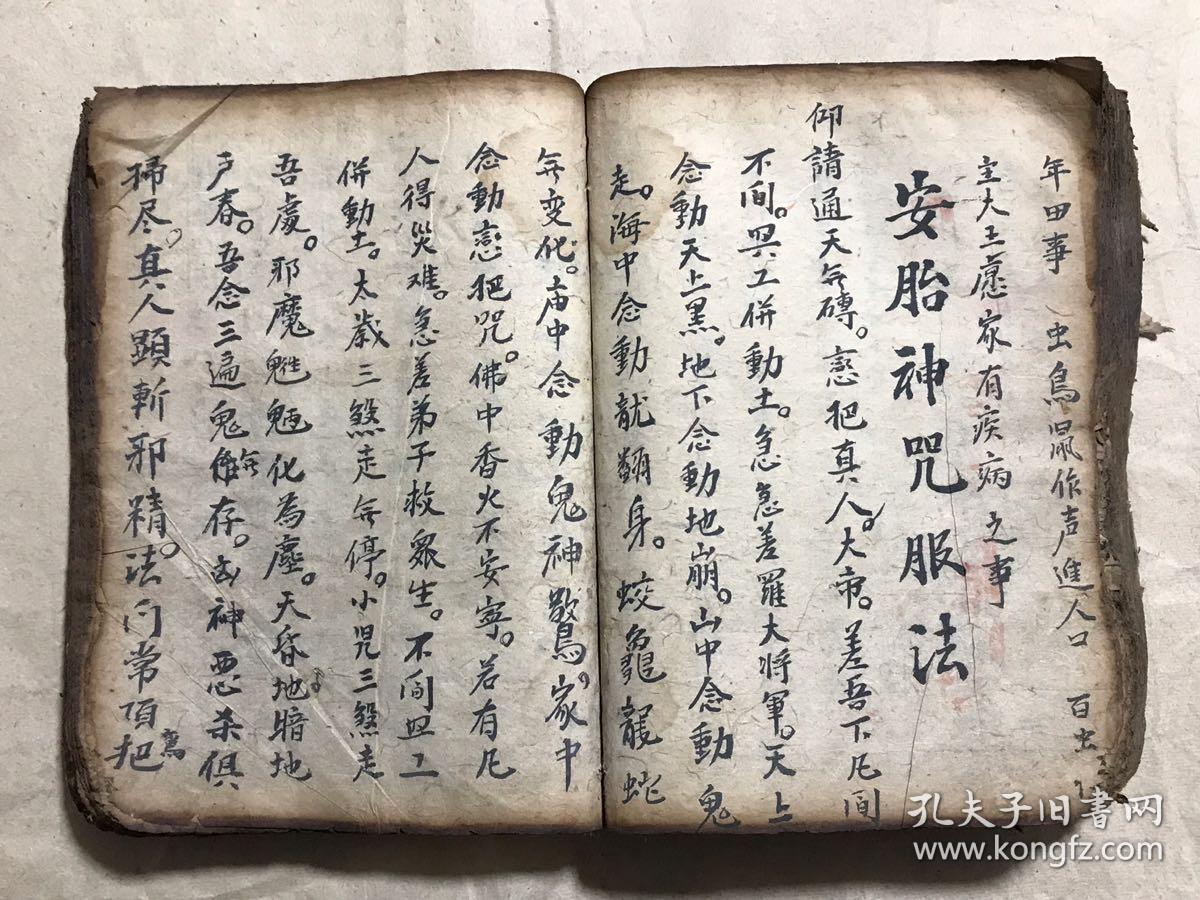 年田事 虫鳥鼠作声進人口 百虫
主大王愿家有疾病之事
安胎神咒服法
仰請通天無礴。恋把真人。大帝。差吾下凡間
不间。興工併動土。急急差羅大将軍。天上
念動天上黑。地下念動地崩。山中念動鬼
走。海中念動龍翻身。蛟龜龍蛇
無变化。庙中念動鬼神驚。家中
念動恋把咒。佛中香火不安寧。若有凡
人得災难。急差弟子救衆生。不间興工
併動土。太歲三煞走無停。小児三煞走
吾處。邪魔魁魉化為塵。天昏地暗地
户春。吾念三遍鬼無存。凶神悪杀俱
掃尽。真人顕斬邪精。法门常頂把
孔夫子旧书网
www.kongfz.com